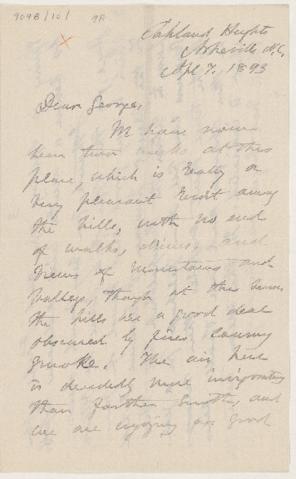 9098/10/ 9A
Oakland Heights
Asheville N.C.
Apl 7. 1893
Dear George,
We have now
been two weeks at this
place, which is really a
very pleasant resort among
the hills, with no end
of walks, drives, and
views of mountains and
valleys, though at this time
the hills are a good deal
obscured by fires causing
smoke. The air here
is decidedly more invigorating
than farther South, and
we are enjoying as good